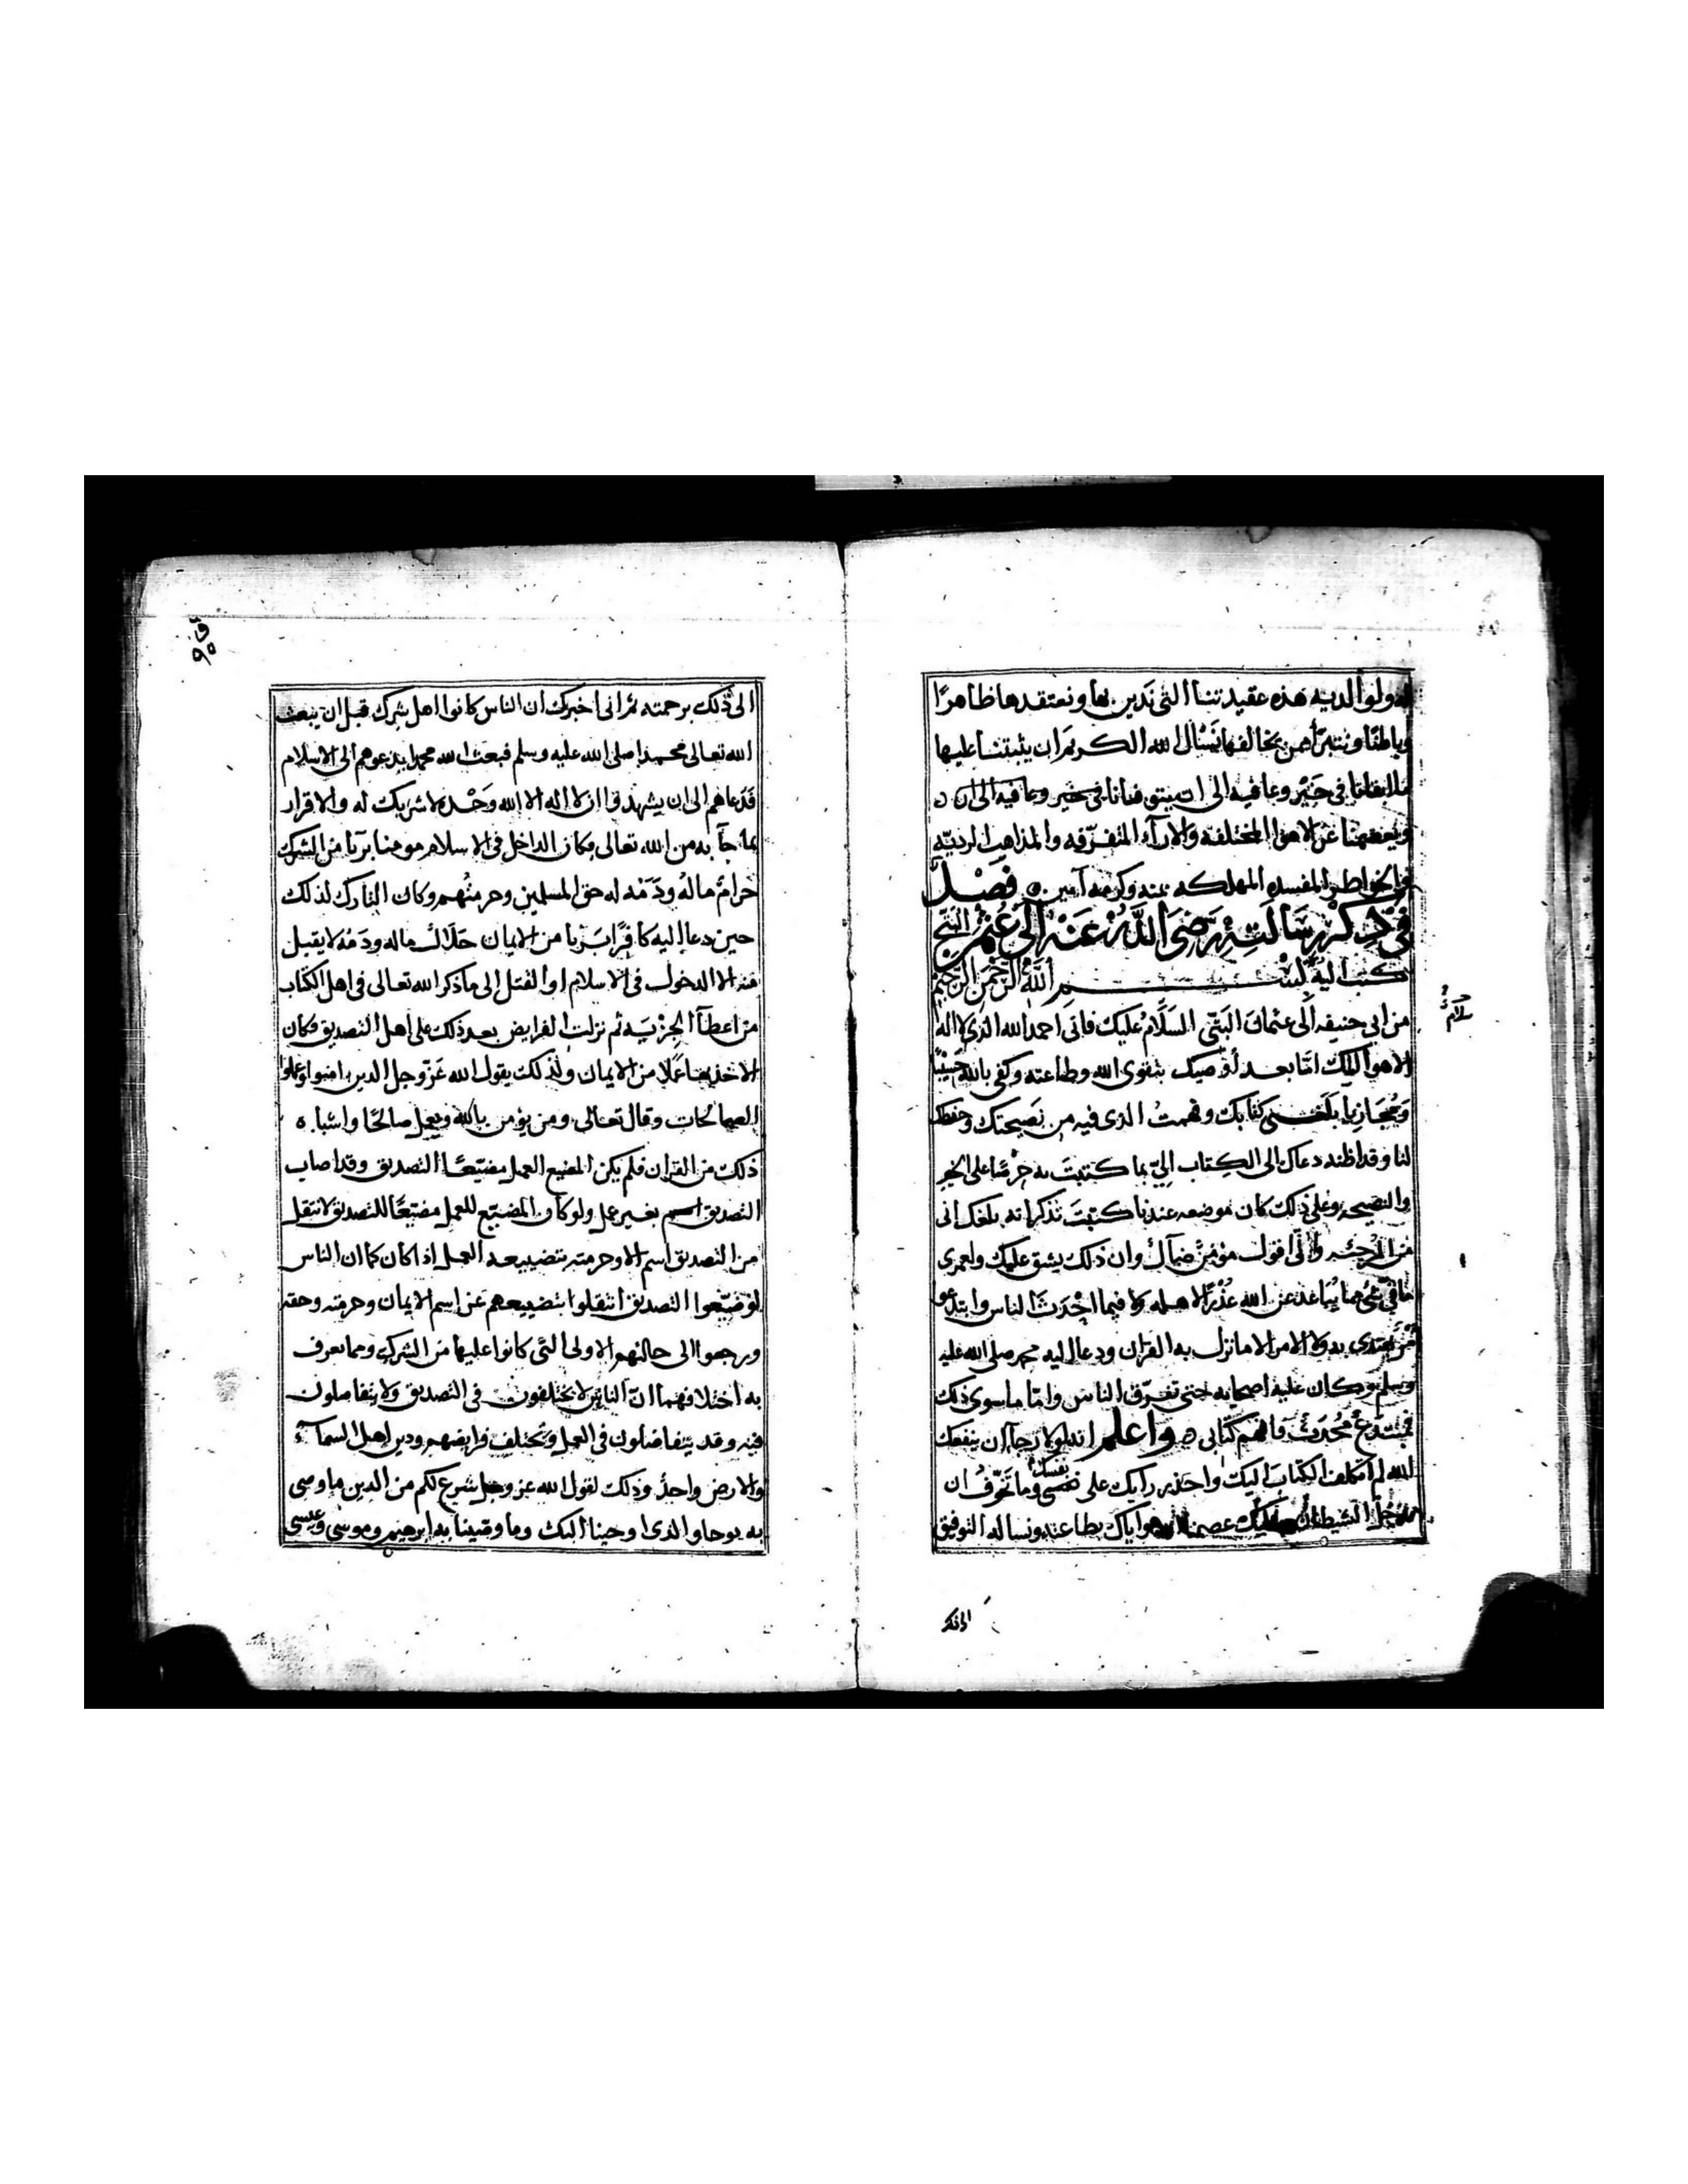 له ولوالديه هذه عقيدتنا التي ندين بها ونعتقدها ظاهرًا
وباطنًا ونتبرأ ممن يخالفها نسال الله الكريم ان يثبتنا عليها
ما ابقانا في خير وعافيه الى ان يتوفانا في خير وعافيه الى ان
ويعصمنا عن الاهوا المختلفه والارآء المتفرّقه والمذاهب الرديّه
والخواطر المفسده المهلكه بمنه وكرمه آمين فصْل
في ذكر رسالته رضى الله عنه الى عثمن البتي
كتب اليه بسم الله الرحمن الرحيم
من ابي حنيفه الى عثمان البَتّى السَلَامُ عليك فانى احمد الله الذى لا اله
الا هو اليك امّا بعد أوصيك بتقوى الله وطاعته وكفى بالله حسيبًا
ومُجَازيا بلغنى كتابك وفهمتُ الذى فيه من نصيحتك وحفظك
لنا وقد اظنه دعاك الى الكِتاب اِليّ بما كتبتَ به حِرْصًا على الخير
والنصيحه وعلى ذلك كان موضعه عندنا كتبتَ تذكر انه بلغك انى
من المرجئه وانّى اقول مؤمنٌ ضآلٌ وان ذلك يشق عليك ولعمرى
ما في شئ مما يُباعد عن الله عُذْرًا لاهله ولا فيما احْدَثَ الناس وابتدعو
يهتدى به ولا الامر الا ما نزل به القران ودعا اليه محمد صلى الله عليه
وسلم وكان عليه اصحابه حتى تفرّق الناس وامّا ما سوى ذلك
فمبتدعٌ مُحْدَثٌ فافهم كتابى ه واعلم انه لولا رجاآ ان ينفعك
الله لم اتكلف الكتابَ اليك واحذر رايك على نفسك وما تخوّفُ ان
يدخل الشيطان عليك عصمنا الله واياك بطاعته ونساله التوفيق
سلام
الى ذلك
ق ٩٥
الى ذلك برحمته ثم انى اخبرك ان الناس كانوا اهل شرك قبل ان يبعث
الله تعالى محمدا صلى الله عليه وسلم فبعث الله محمدا يدعوهم الى الاسلام
فدعاهم الى ان يشهدوا ان لا اله الا الله وَحْده لا شريك له والاقرار
بما جآ به من الله تعالى فكان الداخل في الاسلام مومنا بريّا من الشرك
حرامٌ مالُه ودَمُه له حق المسلمين وحرمتُهم وكان التارك لذلك
حين دعا اليه كافرًا بَريا من الايمان حَلَالٌ ماله ودَمُه لا يقبل
منه الا الدخول فى الاسلام او القتل الى ما ذكر الله تعالى فى اهل الكتاب
من اعطآ الجزْيَه ثم نزلت الفرايض بعد ذلك على اهل التصديق فكان
الاخذ بها عملًا من الايمان ولذلك يقول الله عزّ وجل الذين امنوا وعملوا
الصالحات وقال تعالى ومن يؤمن بالله ويعمل صالحًا واشباه
ذلك من القران فلم يكن المضيع العمل مضيّعًا التصديق وقد اصاب
التصديق اسم بغير عمل ولو كان المضيّع للعمل مضيّعًا للتصديق لانتقل
من التصديق اسم الا وحرمته بتضييعه العمل اذا كان كما ان الناس
لو ضيّعوا التصديق انتقلوا بتضييعهم عن اسم الايمان وحرمته وحقه
ورجعوا الى حالتهم الاولى التى كانوا عليها من الشرك ومما يعرف
به اختلافهما انّ الناس لا يختلفون في التصديق ولا يتفاضلون
فيه وقد يتفاضلون في العمل وتختلف فرايضهم ودين اهل السمآء
والارض واحدٌ وذلك لقول الله عز وجل شرع لكم من الدين ما وصى
به نوحا والذى اوحينا اليك وما وصّينا به ابرهيم وموسى وعيسى